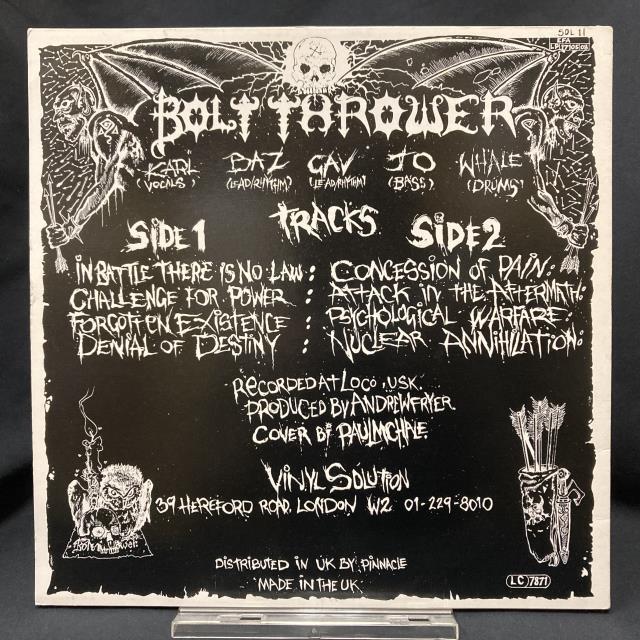 SOL 11
EFA
LP 17105/08
BOLT THROWER
KARL BAZ GAV JO WHALE
(VOCALS) (LEAD/RHYTHM) (LEAD/RHYTHM) (BASS) (DRUMS)
TRACKS
SIDE 1
IN BATTLE THERE IS NO LAW :
CHALLENGE FOR POWER :
FORGOTTEN EXISTENCE :
DENIAL OF DESTINY :
SIDE 2
CONCESSION OF PAIN :
ATTACK IN THE AFTERMATH :
PSYCHOLOGICAL WARFARE :
NUCLEAR ANNIHILATION :
RECORDED AT LOCO, USK.
PRODUCED BY ANDREW FRYER
COVER BY PAUL MCHALE.
VINYL SOLUTION
39 HEREFORD ROAD, LONDON W2 01-229-8010
DISTRIBUTED IN UK BY PINNACLE
MADE IN THE UK
LC 7871